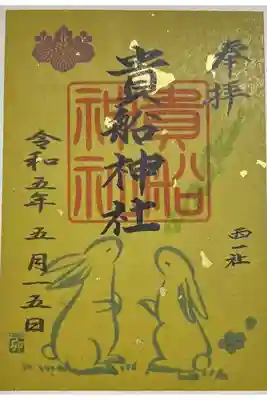 奉拝
西一社
貴船神社
貴船
神社
令和五年 五月一五日